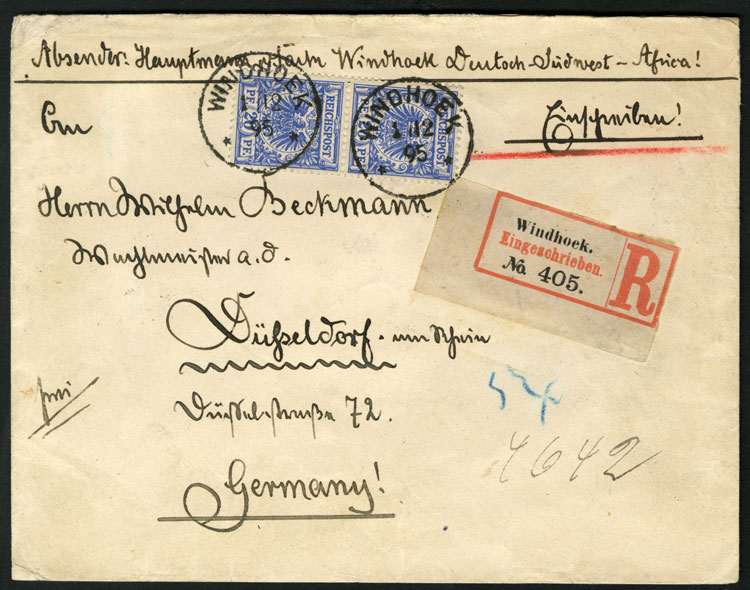 Absender: Hauptmann Windhoek Deutsch-Südwest-Afrika!
WINDHOEK
1 12
95
* *
WINDHOEK
1 12
95
* *
REICHSPOST
20 PF.
REICHSPOST
PF.
Einschreiben!
An
Herrn Wilhelm Beckmann
Wachtmeister a. d.
Düsseldorf. am Rhein
Düsselstraße 72.
Germany!
frei
Windhoek.
Eingeschrieben.
No. 405.
R
4642